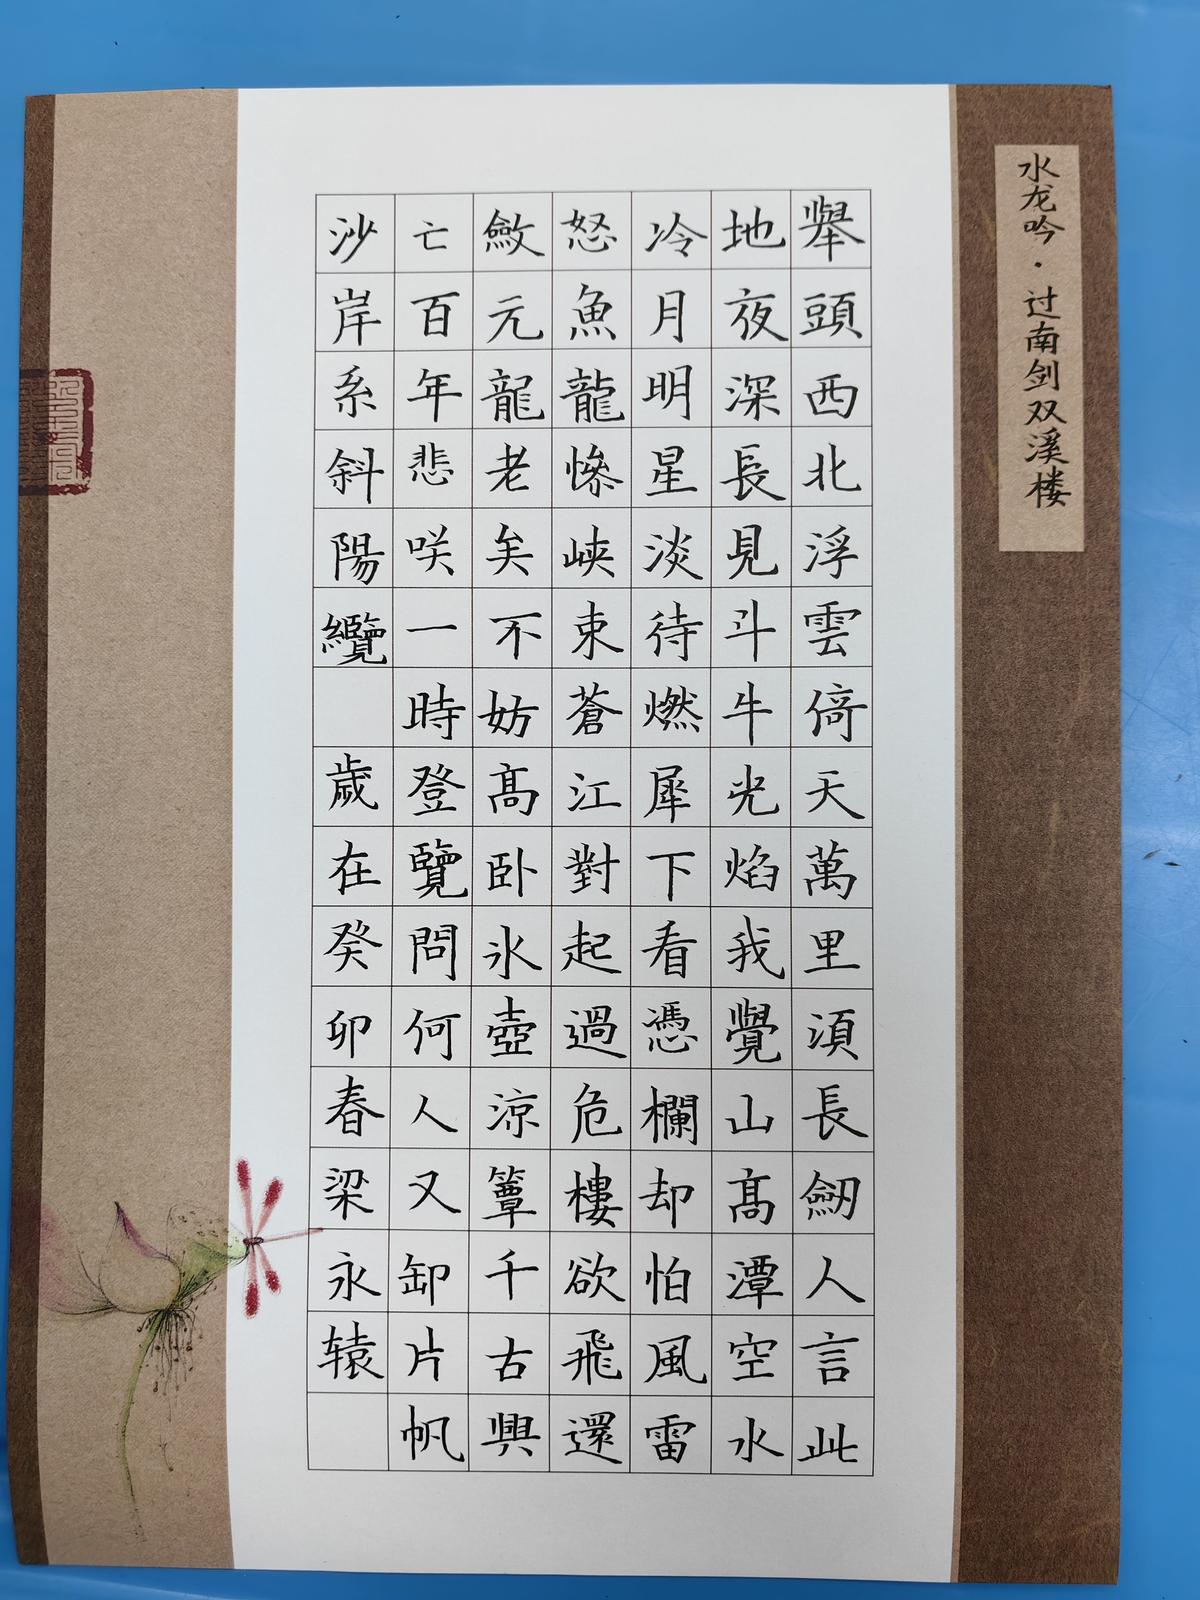 水龙吟·过南剑双溪楼
舉頭西北浮雲倚天萬里須長劒人言此
地夜深長見斗牛光焰我覺山高潭空水
冷月明星淡待燃犀下看憑欄却怕風雷
怒魚龍慘峽束蒼江對起過危樓欲飛還
斂元龍老矣不妨高卧氷壺涼簟千古興
亡百年悲咲一時登覽問何人又卸片帆
沙岸系斜陽纜 歲在癸卯春梁永辕